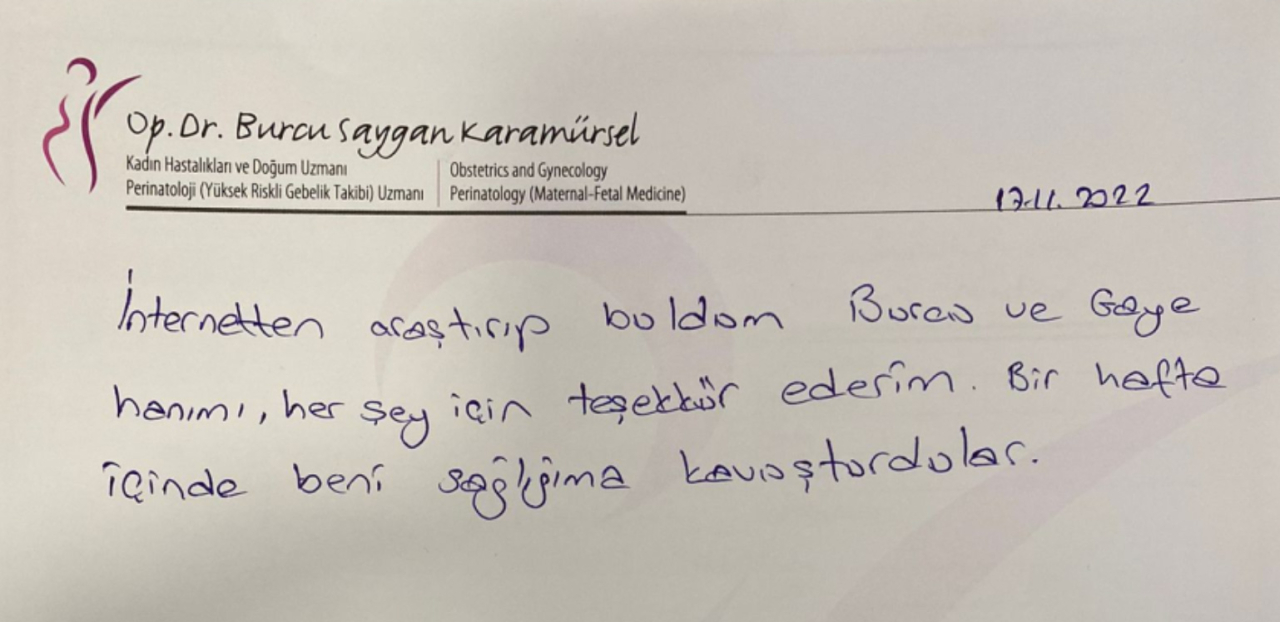 Op. Dr. Burcu Saygan Karamürsel
Kadın Hastalıkları ve Doğum Uzmanı
Perinatoloji (Yüksek Riskli Gebelik Takibi) Uzmanı
Obstetrics and Gynecology
Perinatology (Maternal-Fetal Medicine)
17.11.2022
İnternetten araştırıp buldum Burcu ve Gaye
hanımı, her şey için teşekkür ederim. Bir hafta
içinde beni sağlığıma kavuşturdular.